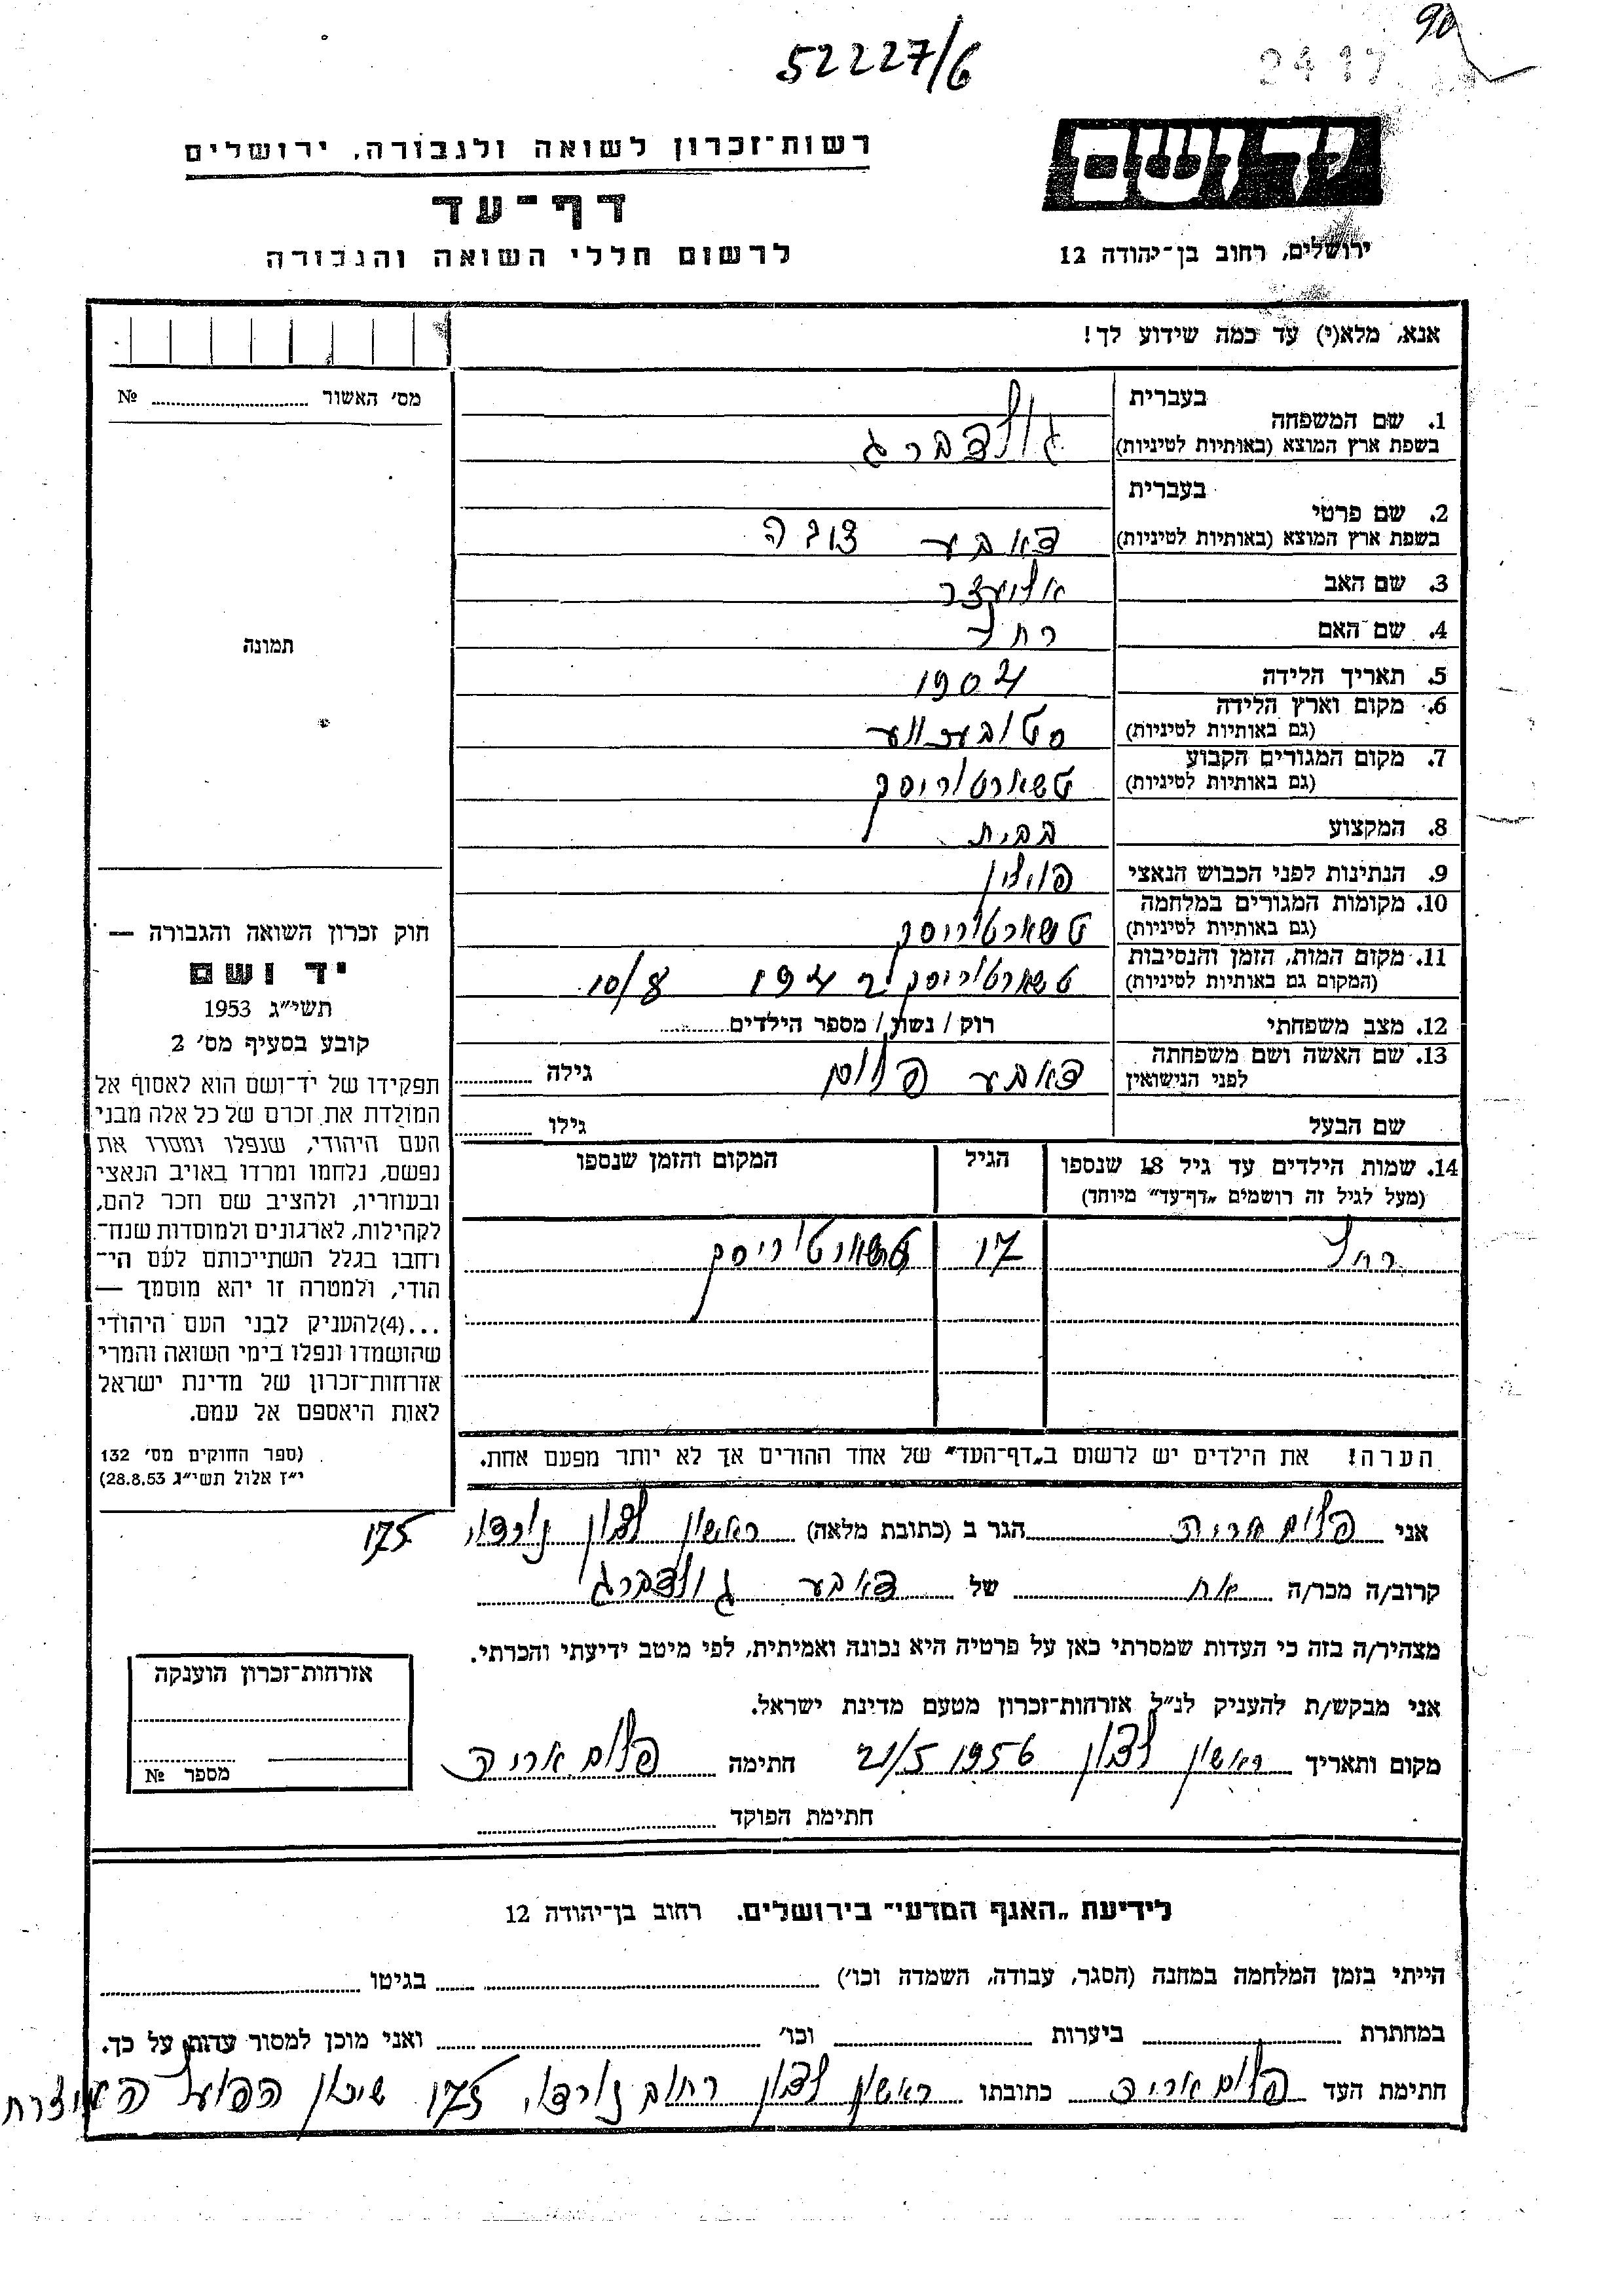 90
2417
52227/6
יד ושם
רשות־זכרון לשואה ולגבורה, ירושלים
דף־עד
ירושלים, רחוב בן־יהודה 12
לרשום חללי השואה והגבורה
אנא, מלא(י) עד כמה שידוע לך!
מס' האשור № 
1. שם המשפחה
בעברית
בשפת ארץ המוצא (באותיות לטיניות)
גולדברג
2. שם פרטי
בעברית
בשפת ארץ המוצא (באותיות לטיניות)
דאבע
3. שם האב אליעזר
4. שם האם רחל
5. תאריך הלידה 1904
6. מקום וארץ הלידה
(גם באותיות לטיניות)
7. מקום המגורים הקבוע
(גם באותיות לטיניות) טשארטוריסק
8. המקצוע בבית
9. הנתינות לפני הכבוש הנאצי פוילין
10. מקומות המגורים במלחמה
(גם באותיות לטיניות) טשארטוריסק
11. מקום המות, הזמן והנסיבות
(המקום גם באותיות לטיניות) טשארטוריסק 10/8
12. מצב משפחתי רוק / נשוי / מספר הילדים
13. שם האשה ושם משפחתה
לפני הנישואין דאבע גילה
שם הבעל גילו
14. שמות הילדים עד גיל 18 שנספו
(מעל לגיל זה רושמים „דף־עד” מיוחד)
הגיל
המקום והזמן שנספו
רחל 17 טשארטוריסק
הערה! את הילדים יש לרשום ב„דף־העד” של אחד ההורים אך לא יותר מפעם אחת.
תמונה
חוק זכרון השואה והגבורה —
יד ושם
תשי״ג 1953
קובע בסעיף מס' 2
תפקידו של יד־ושם הוא לאסוף אל
המולדת את זכרם של כל אלה מבני
העם היהודי, שנפלו ומסרו את
נפשם, נלחמו ומרדו באויב הנאצי
ובעוזריו, ולהציב שם וזכר להם,
לקהילות, לארגונים ולמוסדות שנח־
רחבו בגלל השתייכותם לעם הי־
הודי, ולמטרה זו יהא מוסמך —
...(4)להעניק לבני העם היהודי
שהושמדו ונפלו בימי השואה והמרי
אזרחות־זכרון של מדינת ישראל
לאות היאספם אל עמם.
(ספר החוקים מס' 132
י״ז אלול תשי״ג 28.8.53)
אני אריה הגר ב (כתובת מלאה) ראשון לציון נורדוי 175
קרוב/ה מכר/ה אח של דאבע גולדברג
מצהיר/ה בזה כי העדות שמסרתי כאן על פרטיה היא נכונה ואמיתית, לפי מיטב ידיעתי והכרתי.
אני מבקש/ת להעניק לנ״ל אזרחות־זכרון מטעם מדינת ישראל.
מקום ותאריך ראשון לציון 21/5 1956 חתימה אריה
חתימת הפוקד
אזרחות־זכרון הוענקה
מספר №
לידיעת „האגף המדעי” בירושלים. רחוב בן־יהודה 12
הייתי בזמן המלחמה במחנה (הסגר, עבודה, השמדה וכו') בגיטו
במחתרת ביערות וכו' ואני מוכן למסור עדות על כך.
חתימת העד אריה כתובתו ראשון לציון רחוב נורדוי 175 שיכון הפועל המזרחי